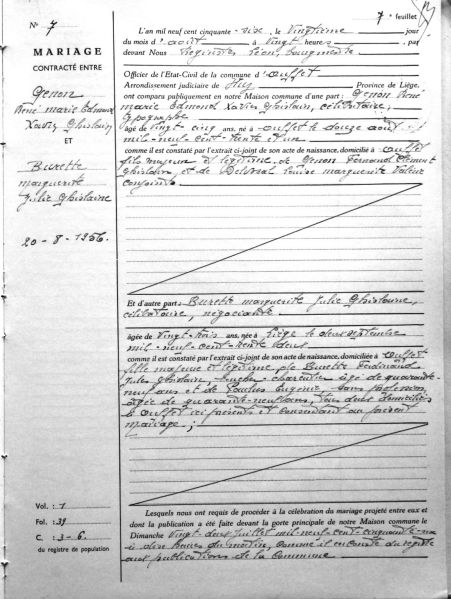 7e feuillet
N° 7
MARIAGE
CONTRACTÉ ENTRE
Genon
René Marie Edmond
Xavier Ghislain
ET
Burette
Marguerite
Julie Ghislaine
20 - 8 - 1956.
L'an mil neuf cent cinquante - six, le vingtième jour
du mois d'août à vingt heures , par
devant Nous Léon,
Officier de l'Etat-Civil de la commune d'Ouffet
Arrondissement judiciaire de Huy Province de Liège,
ont comparu publiquement en notre Maison commune d'une part : Genon René
Marie Edmond Xavier Ghislain, célibataire,
typographe
âgé de vingt-cinq ans, né à Ouffet le douze août
mil-neuf-cent-trente et un
comme il est constaté par l'extrait ci-joint de son acte de naissance, domicilié à Ouffet
fils majeur et légitime de Genon Fernand Clément
Ghislain, et de Louise Marguerite
conjoints
Et d'autre part : Burette Marguerite Julie Ghislaine,
célibataire, négociante
âgée de vingt-trois ans, née à Liège le deux septembre
mil-neuf-cent-trente deux
comme il est constaté par l'extrait ci-joint de son acte de naissance, domiciliée à Ouffet
fille majeure et légitime de Burette Ferdinand
Jules Ghislain, boucher-charcutier âgé de quarante-
neuf ans et de Eugénie, sans profession
âgée de quarante-neuf ans, tous deux domiciliés
à Ouffet ici présents et consentant au présent
mariage ;
Lesquels nous ont requis de procéder à la célébration du mariage projeté entre eux et
dont la publication a été faite devant la porte principale de notre Maison commune le
Dimanche vingt-deux juillet mil-neuf-cent-cinquante-six
à dix heures du matin, comme il en conste du registre
aux publications de la commune
Vol. : 1
Fol. : 39
C. : 3-6.
du registre de population